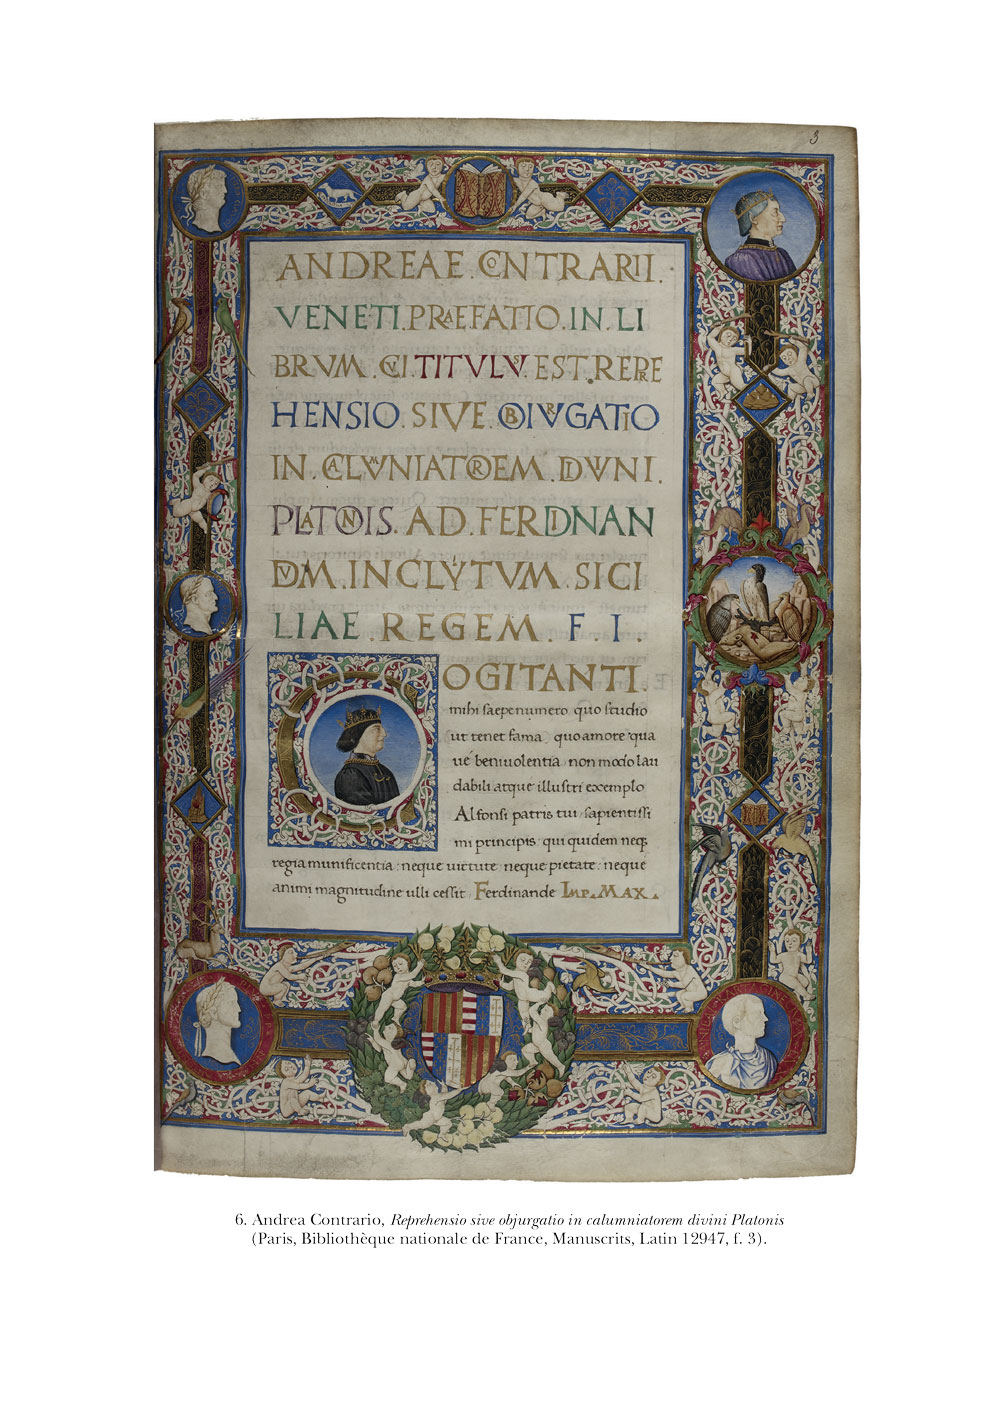 3
ANDREAE CONTRARII.
VENETI. PRAEFATIO. IN. LI
BRVM. CVI. TITVLVS. EST. REPRE
HENSIO. SIVE. OBIVRGATIO
IN. CALVMNIATOREM. DIVINI.
PLATONIS. AD. FERDINAN
DVM. INCLYTVM. SICI
LIAE. REGEM. F I
OGITANTI.
mihi saepenumero quo studio
ut tenet fama quo amore qua
ue beniuolentia non modo lau
dabili atque illustri exemplo
Alfonsi patris tui sapientissi
mi principis qui quidem neq;
regia munificentia neque uirtute neque pietate neque
animi magnitudine ulli cessit. Ferdinande IMP. MAX.
6. Andrea Contrario, Reprehensio sive objurgatio in calumniatorem divini Platonis
(Paris, Bibliothèque nationale de France, Manuscrits, Latin 12947, f. 3).